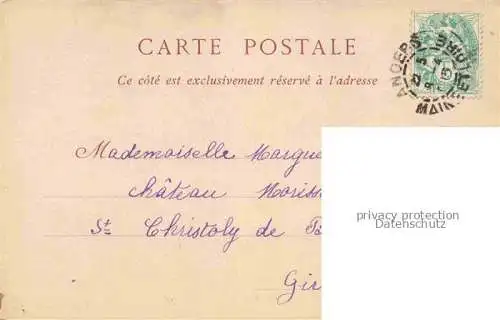 CARTE POSTALE
Ce côté est exclusivement réservé à l'adresse
ANGERS
MAINE ET LOIRE
Mademoiselle Margue
château Moriss
St Christoly de
Gir
privacy protection
Datenschutz